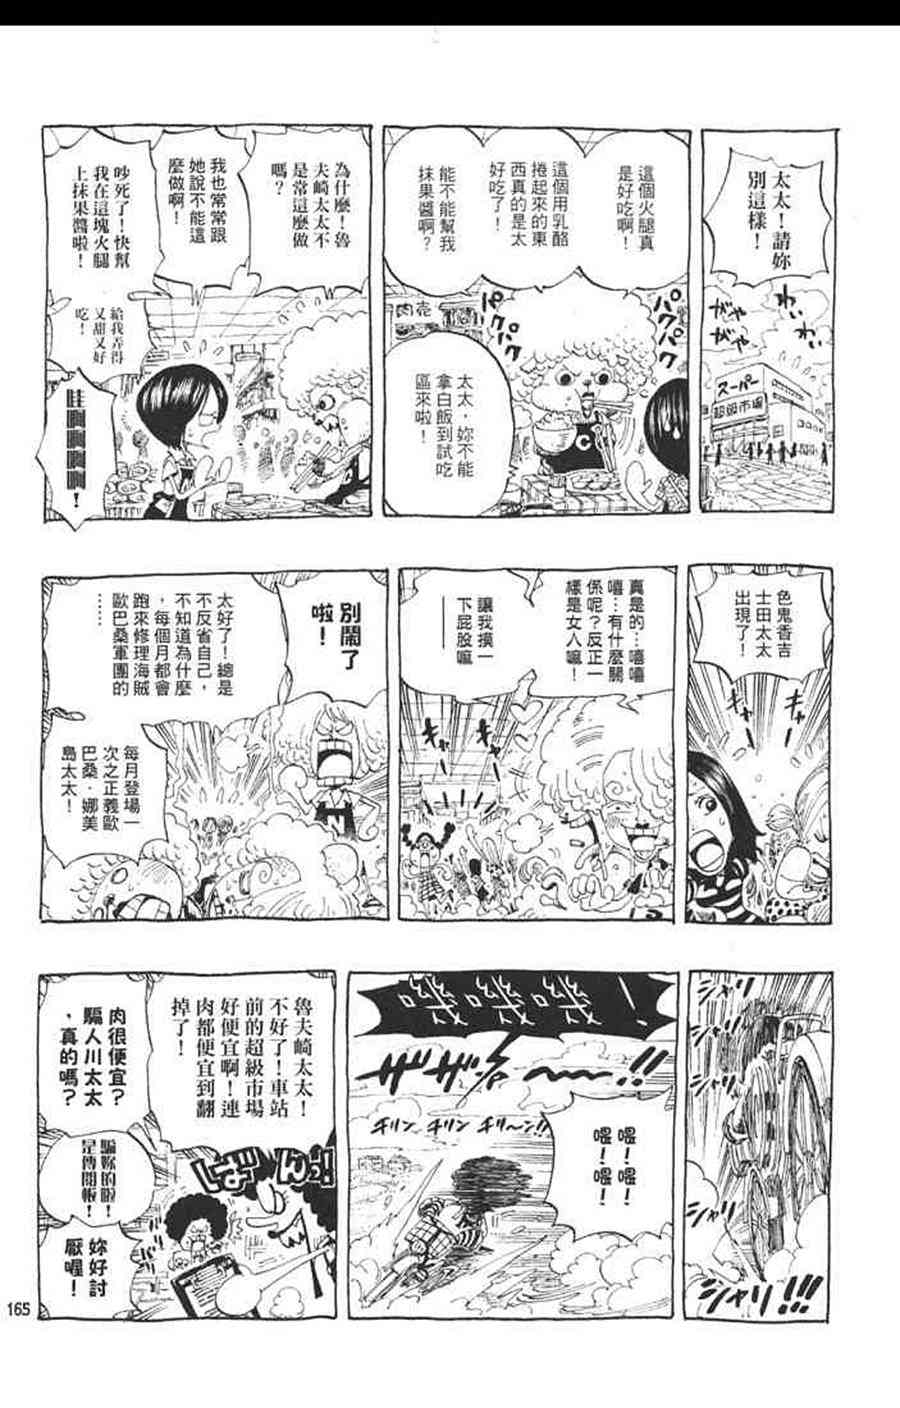 太太！請妳
別這樣！
わい
わい
がや
がや
スーパー
超級市場
這個火腿真
是好吃啊！
這個用乳酪
捲起來的東
西真的是太
好吃了！
能不能幫我
抹果醬啊？
パク
パク
パク
パク
肉売
C
太太，妳不能
拿白飯到試吃
區來啦！
為什麼！魯
夫崎太太不
是常這麼做
嗎？
我也常常跟
她說不能這
麼做啊！
吵死了！快幫
我在這塊火腿
上抹果醬啦！
給我弄得
又甜又好
吃！
哇啊啊啊啊！
色鬼香吉
士田太太
出現了！
真是的…嘻嘻
嘻…有什麼關
係呢？反正一
樣是女人嘛！
讓我摸一
下屁股嘛
——
キャー
キャー
別鬧了
啦！
太好了！總是
不反省自己，
不知道為什麼
，每個月都會
跑來修理海賊
歐巴桑軍團的
……
每月登場一
次之正義歐
巴桑．娜美
島太太！
シャッ
シャッ
シャリ!!!
嘰嘰嘰！
ザザザ〜〜〜!!!
チリン チリン チリ〜ン!!
喂！喂！
喂！喂！
魯夫崎太太！
不好了！車站
前的超級市場
好便宜啊！連
肉都便宜到翻
掉了！
ばんっ!
肉很便宜？
騙人川太太
，真的嗎？
騙妳的啦！
是傳閱板！
妳好討
厭喔！
165